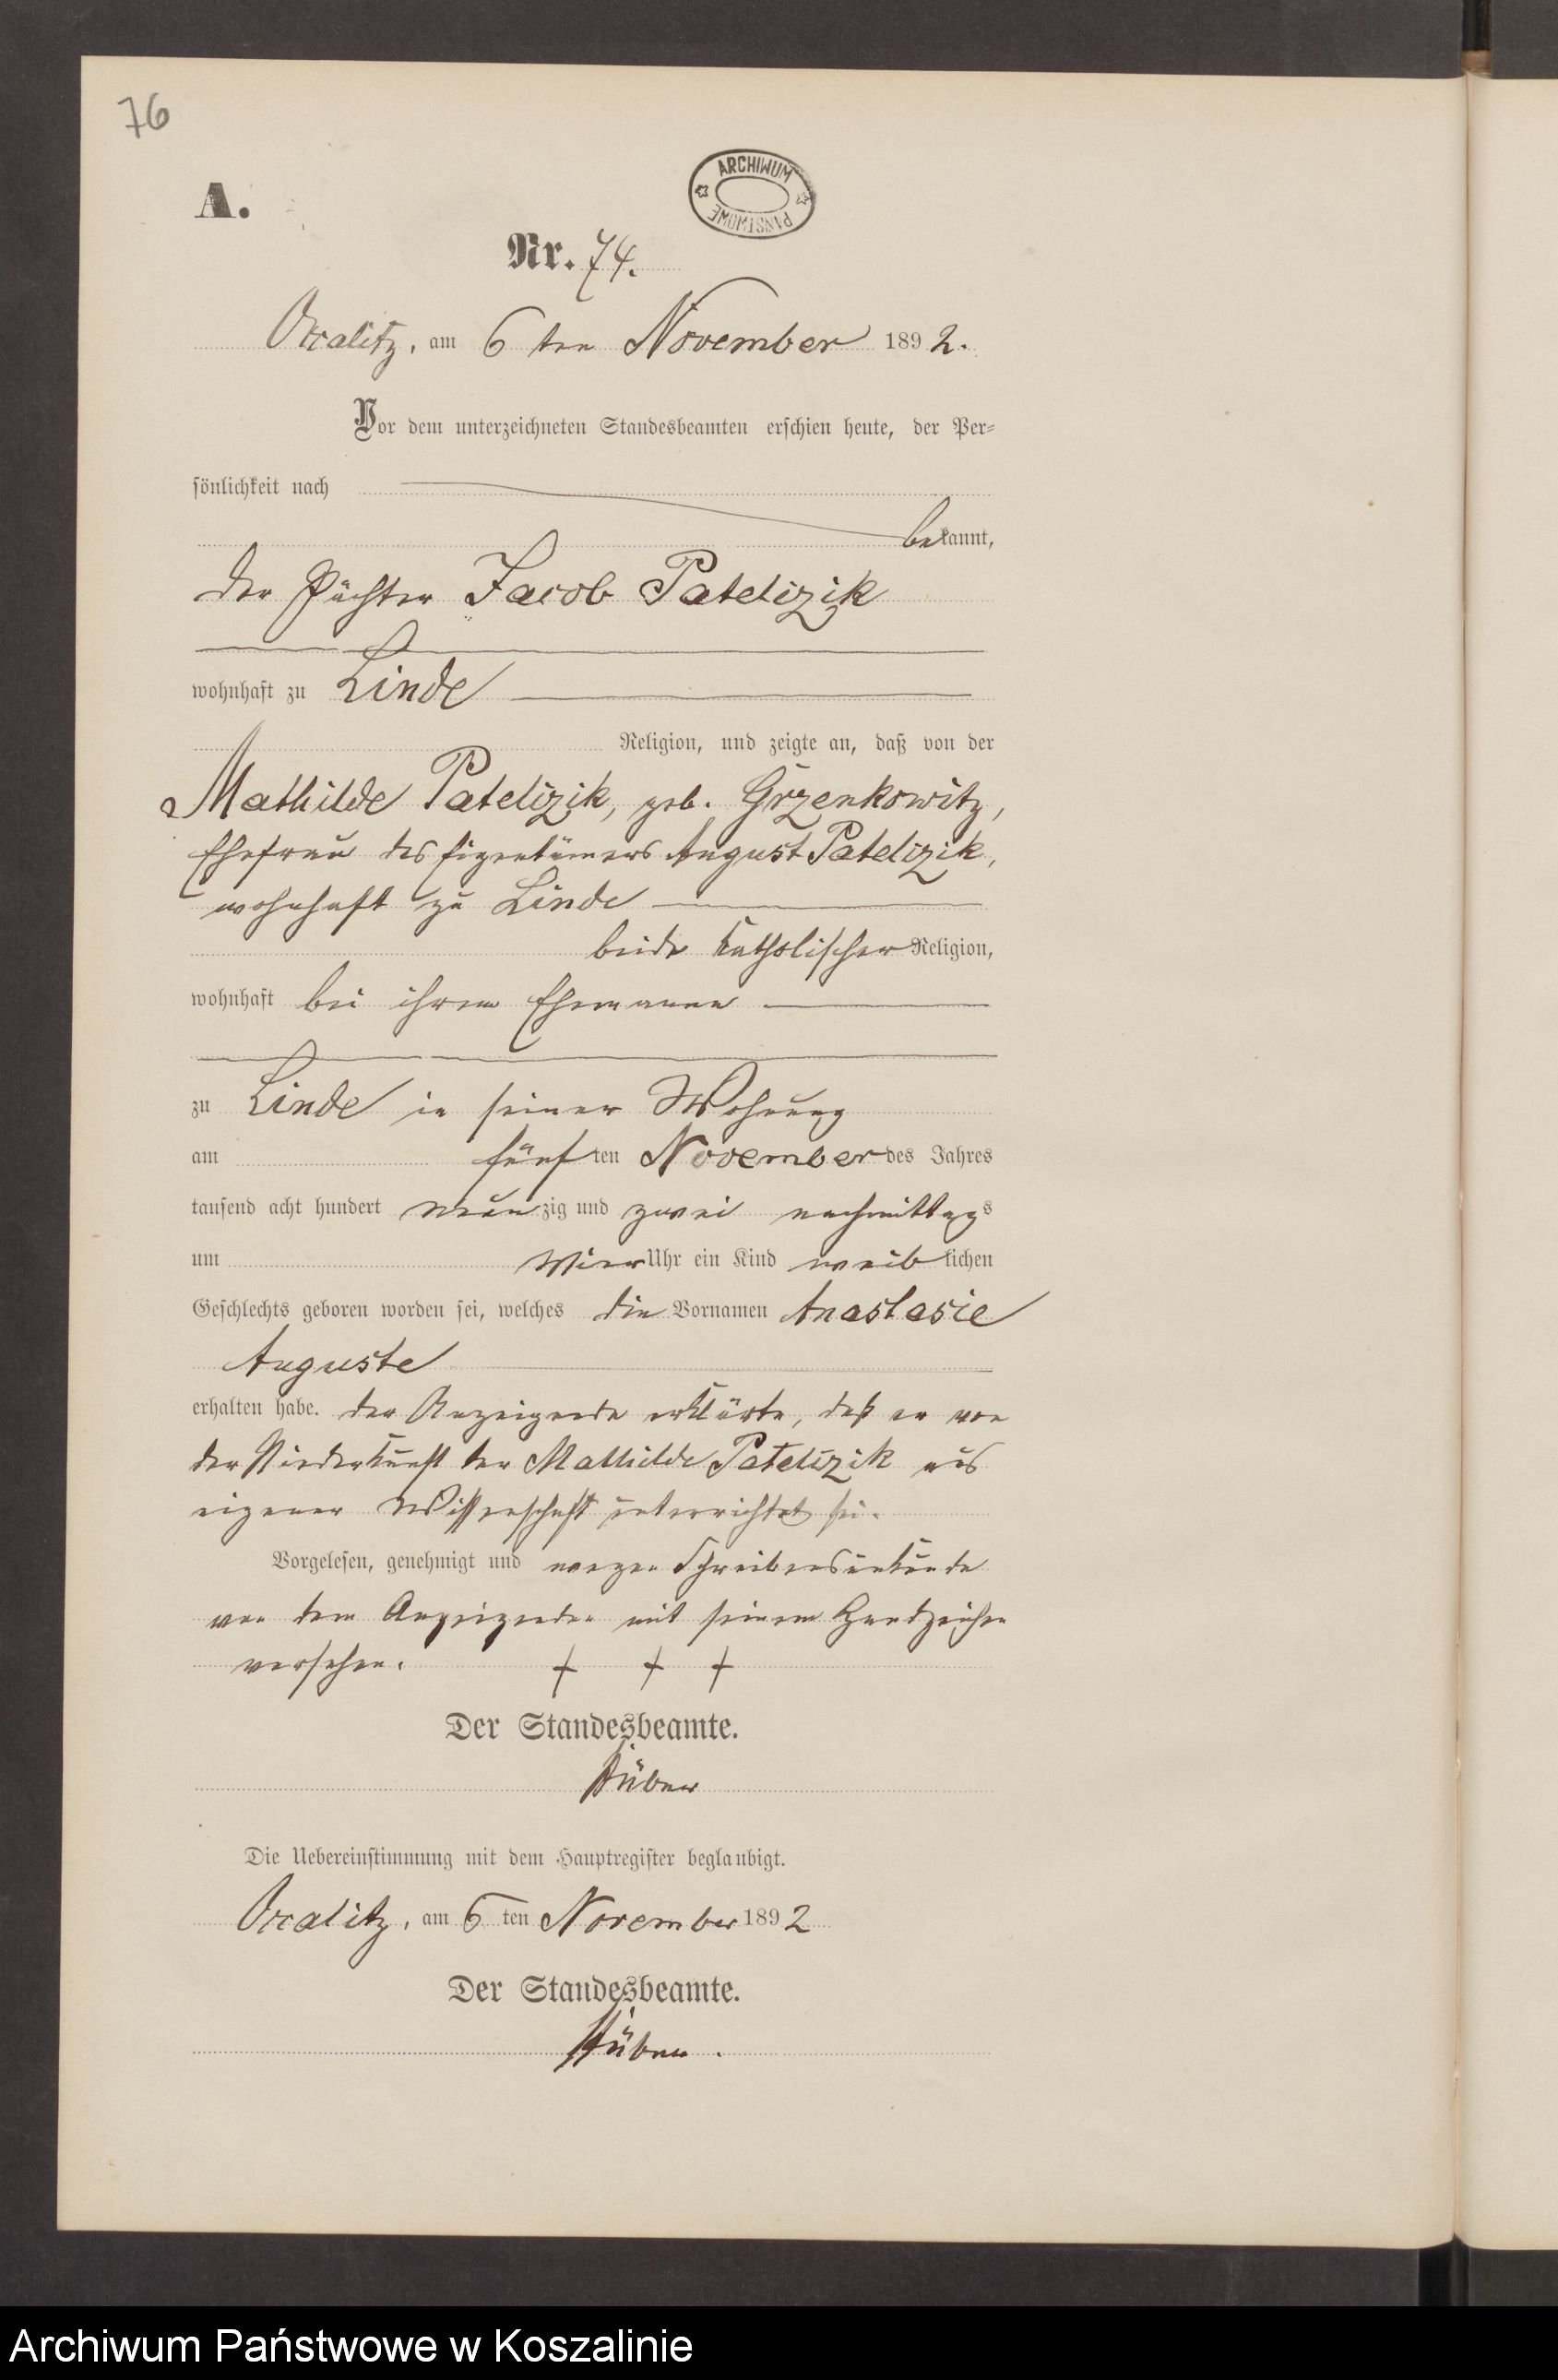 76
ARCHIWUM PAŃSTWOWE
A.
Nr. 74.
Oxalitz, am 6 ten November 1892.
Vor dem unterzeichneten Standesbeamten erschien heute, der Per-
sönlichkeit nach
bekannt,
der Pächter Jacob Patelizik
wohnhaft zu Linde
Religion, und zeigte an, daß von der
Mathilde Patelizik, geb. Grzenkowitz,
Ehefrau des Eigentümers August Patelizik,
wohnhaft zu Linde
beide katholischer Religion,
wohnhaft bei ihrem Ehemanne
zu Linde in seiner Wohnung
am fünften November des Jahres
tausend acht hundert neunzig und zwei nachmittags
um Vier Uhr ein Kind weiblichen
Geschlechts geboren worden sei, welches die Vornamen Anastasie
Auguste
erhalten habe. der Anzeigende erklärte, daß er von
der Niederkunft der Mathilde Patelizik aus
eigener Wissenschaft unterrichtet sei.
Vorgelesen, genehmigt und wegen Schreibensunkunde
von dem Anzeigenden mit seinem Handzeichen
versehen. + + +
Der Standesbeamte.
Die Uebereinstimmung mit dem Hauptregister beglaubigt.
Oxalitz, am 6 ten November 1892
Der Standesbeamte.
Archiwum Państwowe w Koszalinie